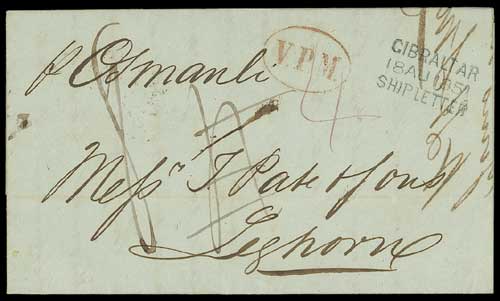 p Osmanli
V.P.M.
GIBRALTAR
18 AU 1851
SHIPLETTER
4
Messrs T Pate & Sons
Leghorn